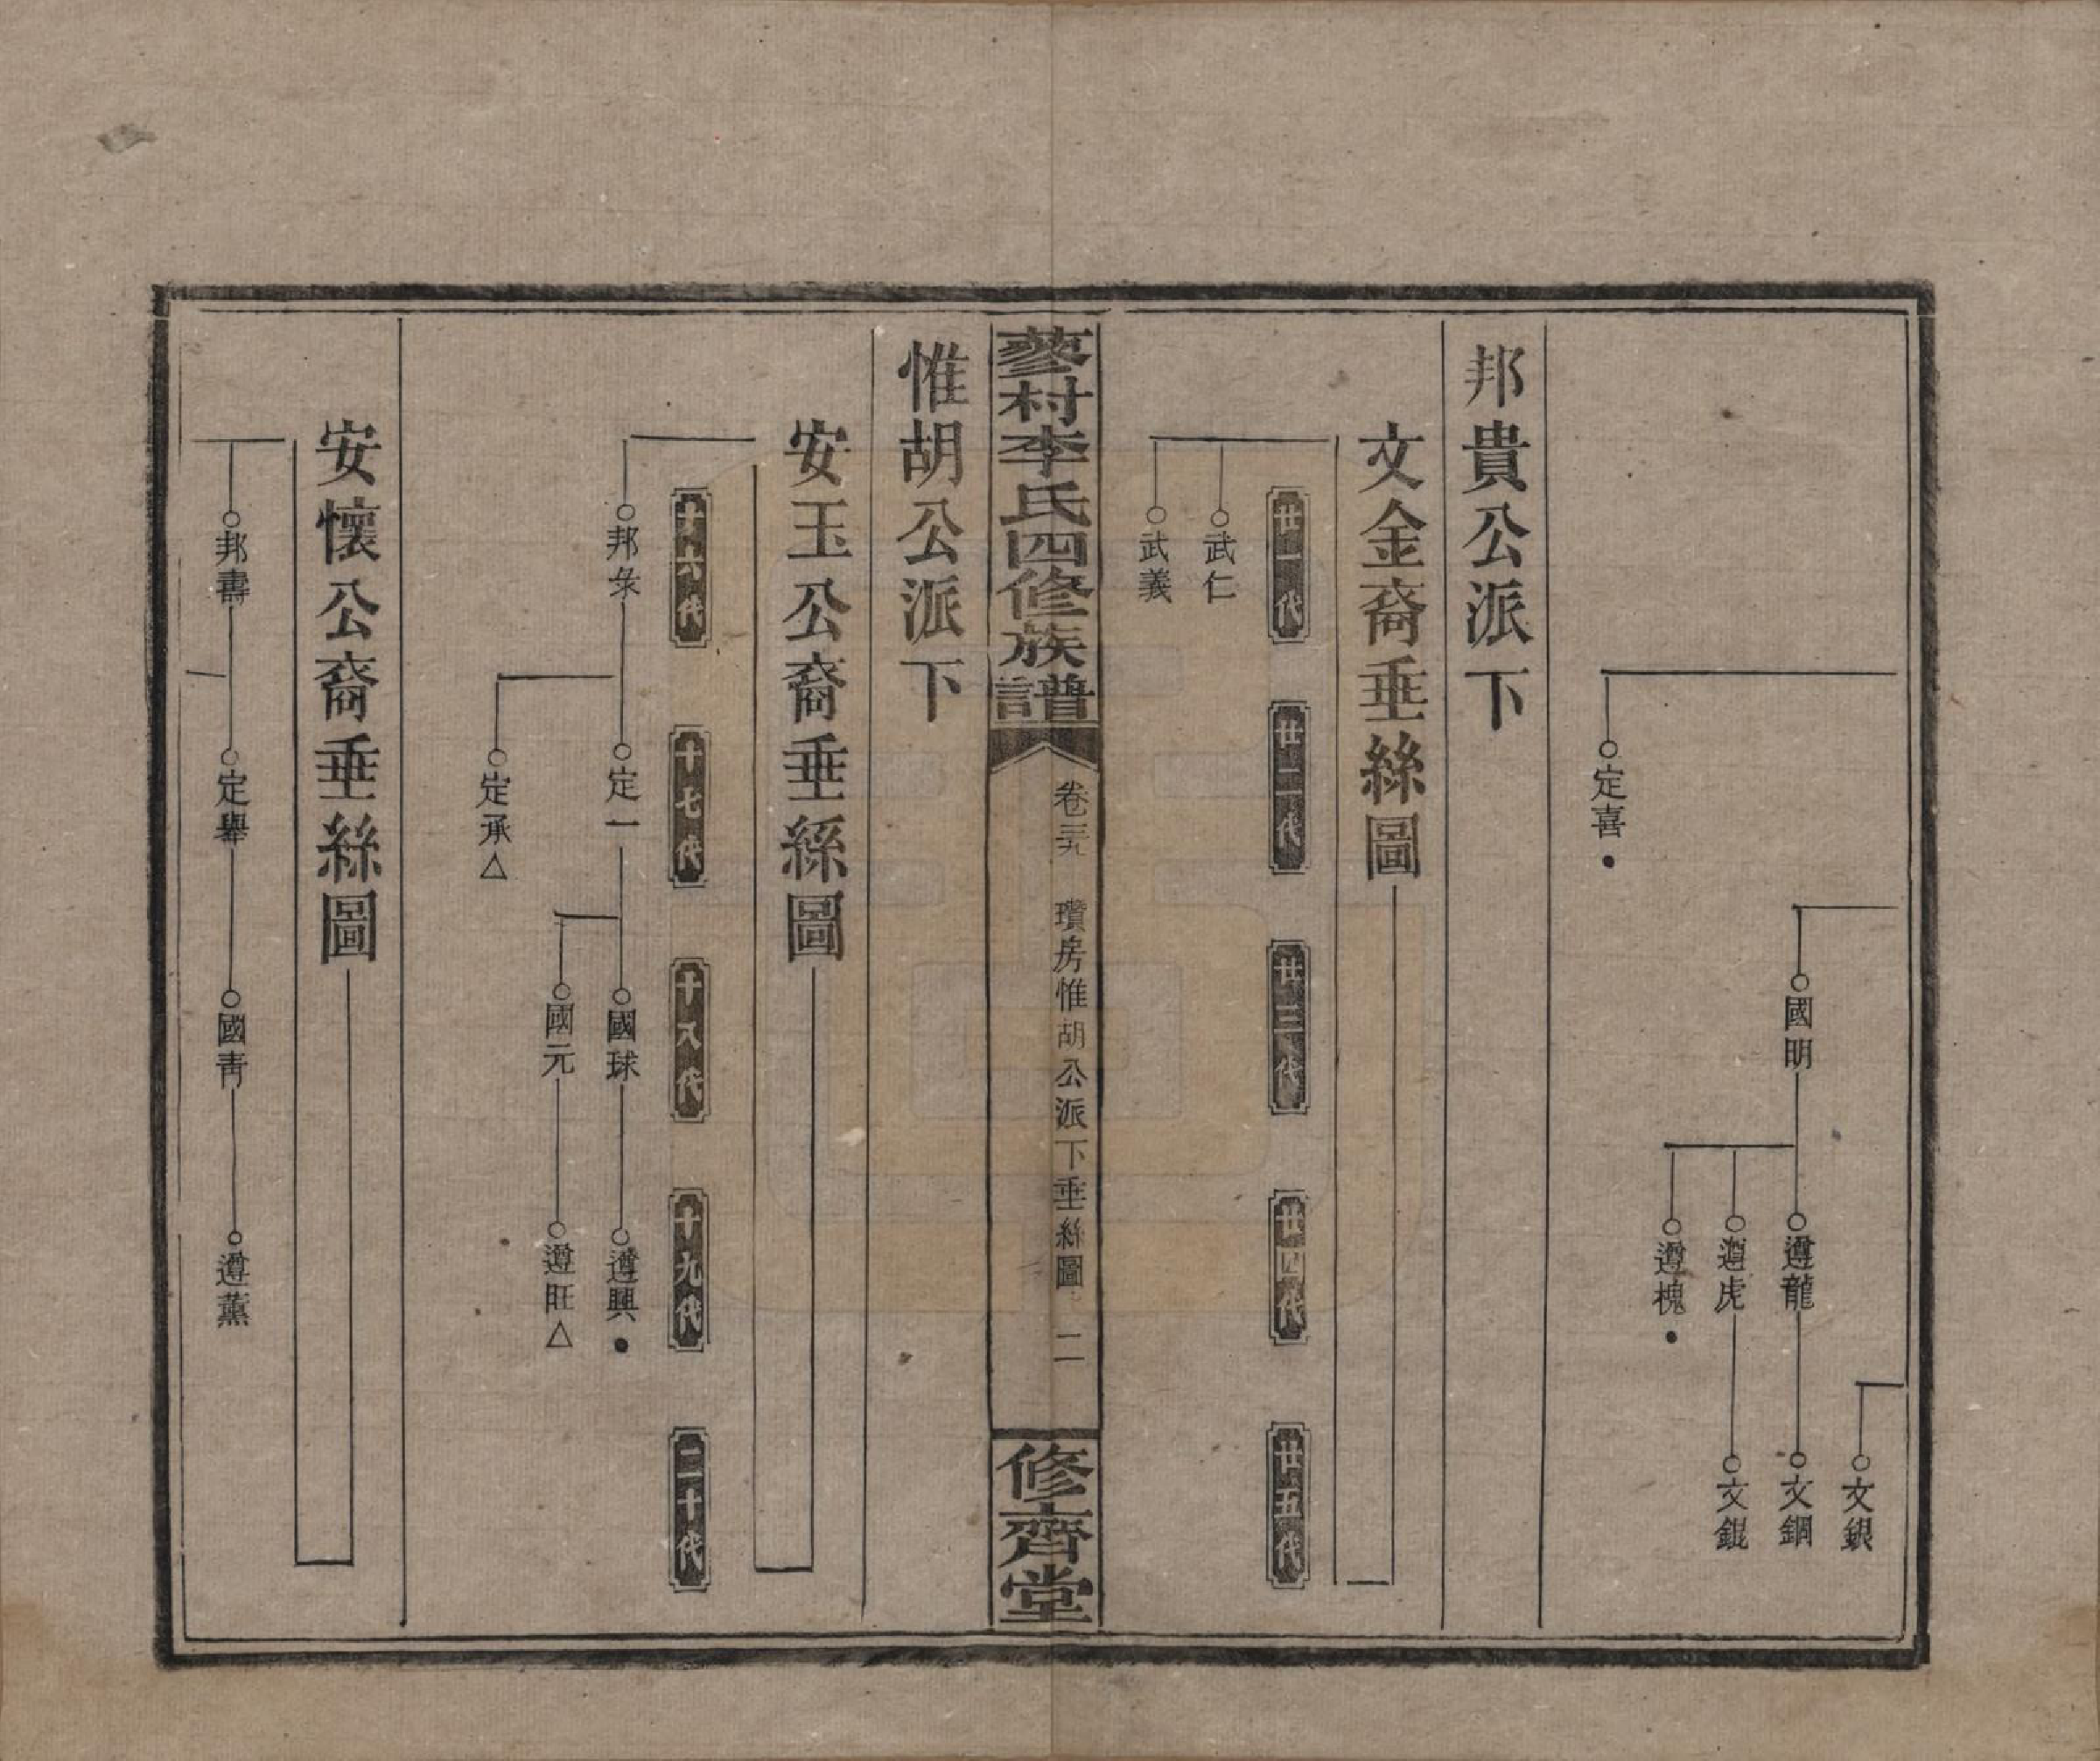 定喜
國明
遵龍
遵虎
遵槐
文銀
文鋼
文錕
邦貴公派下
文金裔垂絲圖
廿一代
廿二代
廿三代
廿四代
廿五代
武仁
武義
蓼村李氏四修族譜
卷三九
瓚房惟胡公派下垂絲圖
二
修齊堂
惟胡公派下
安玉公裔垂絲圖
十六代
十七代
十八代
十九代
二十代
邦彔
定一
定承
國球
國元
遵興
遵旺
安懷公裔垂絲圖
邦壽
定舉
國靑
遵薰